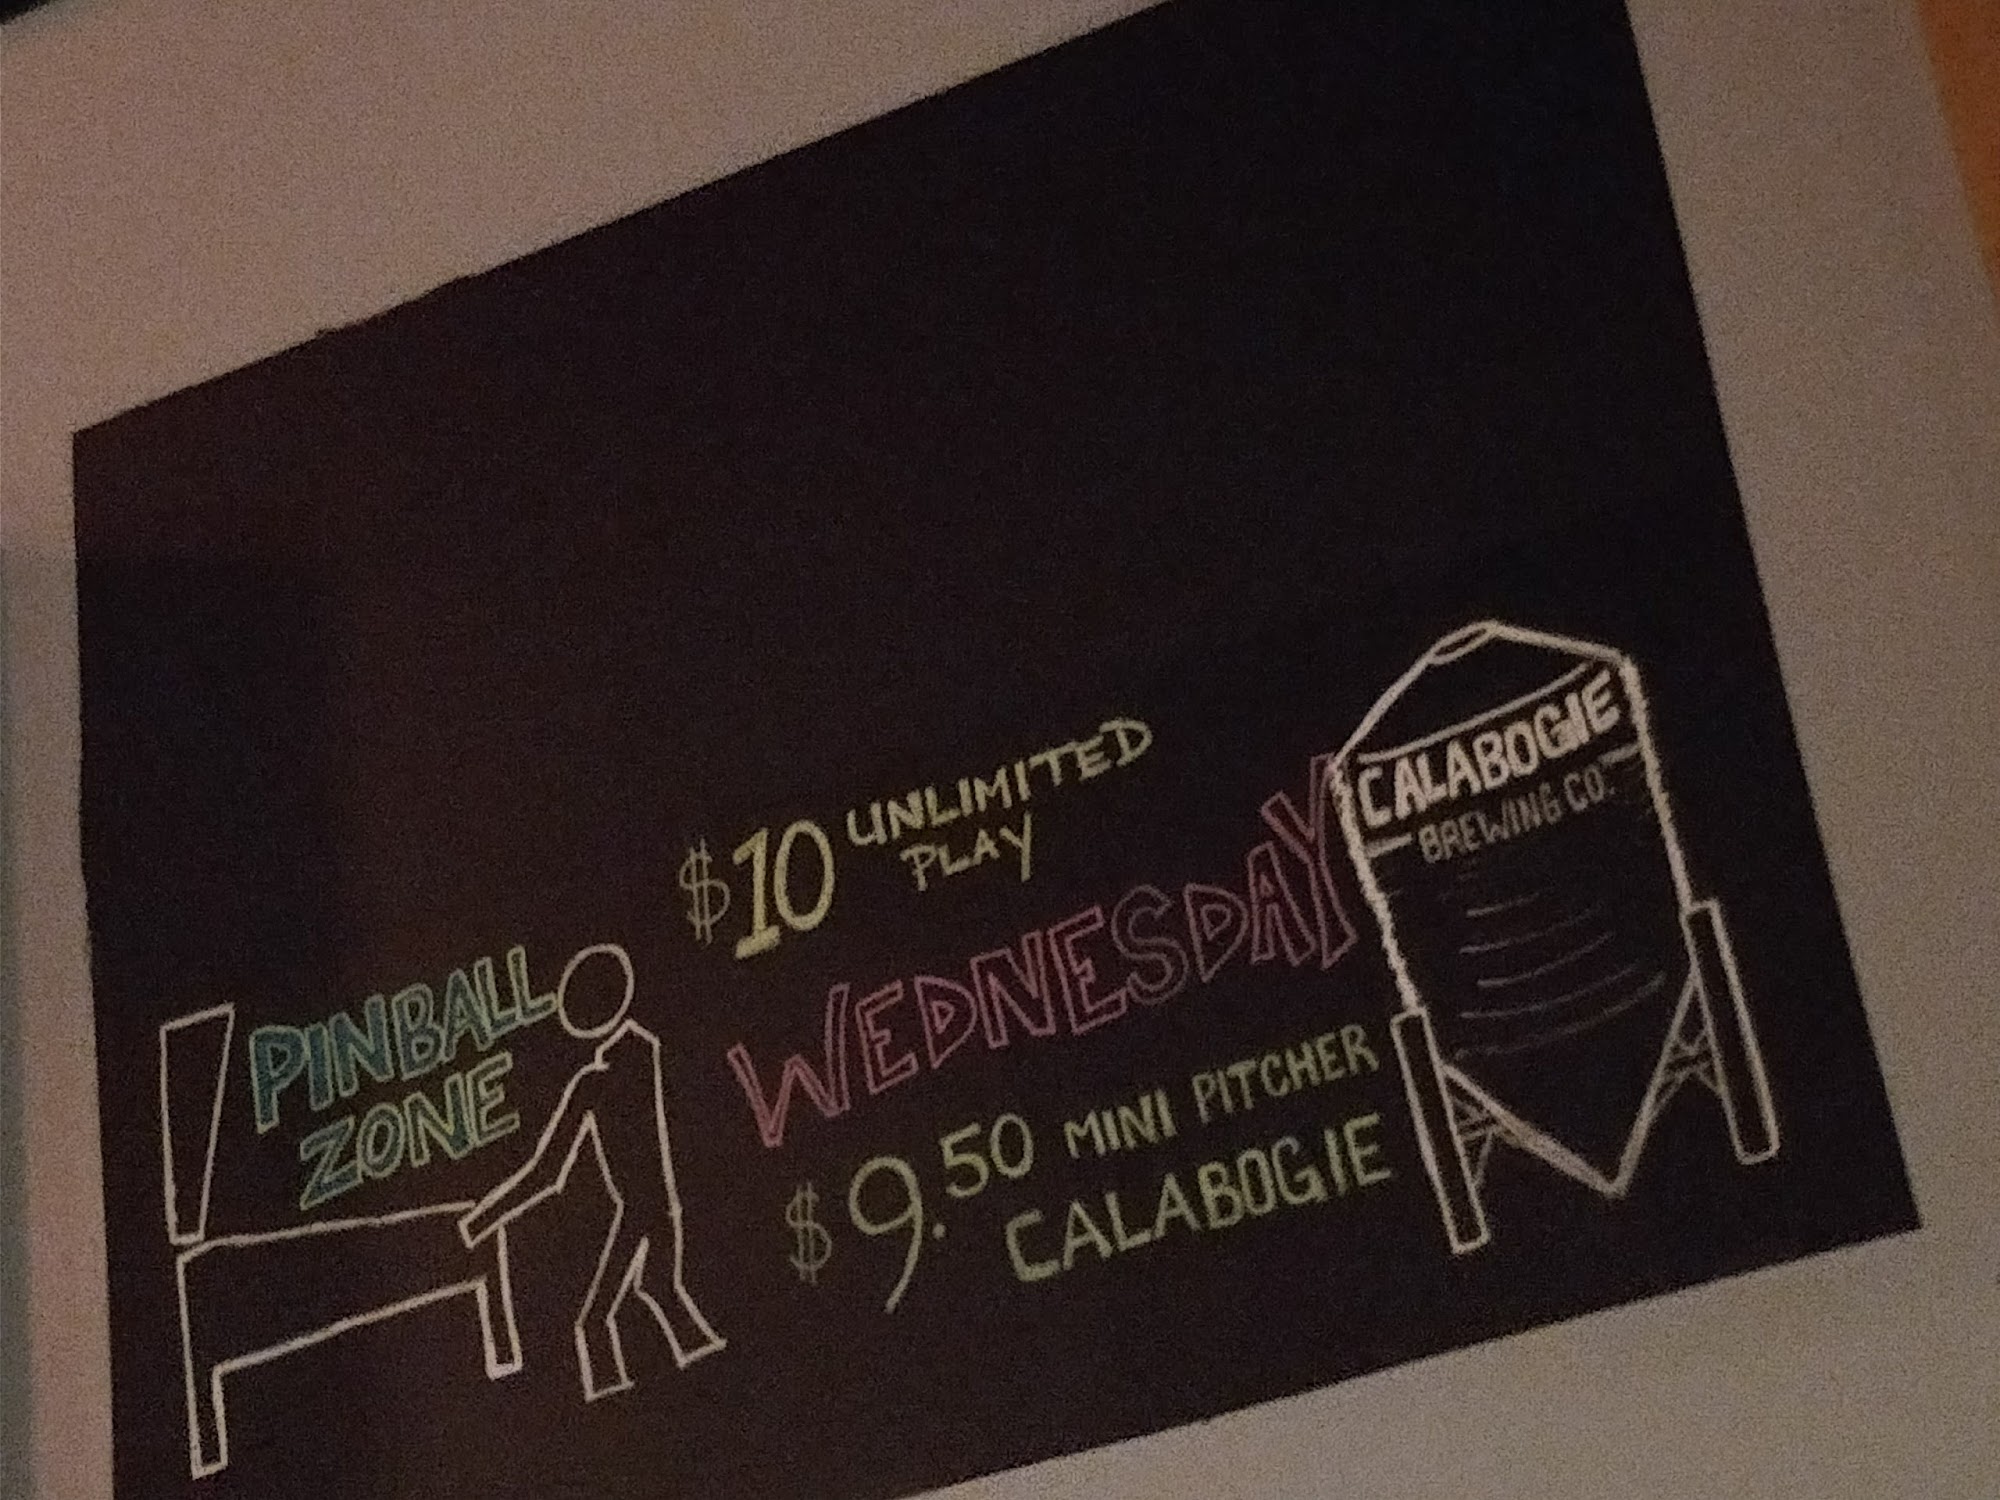 PINBALL
ZONE
$10 UNLIMITED
PLAY
WEDNESDAY
$9.50 MINI PITCHER
CALABOGIE
CALABOGIE
BREWING CO.